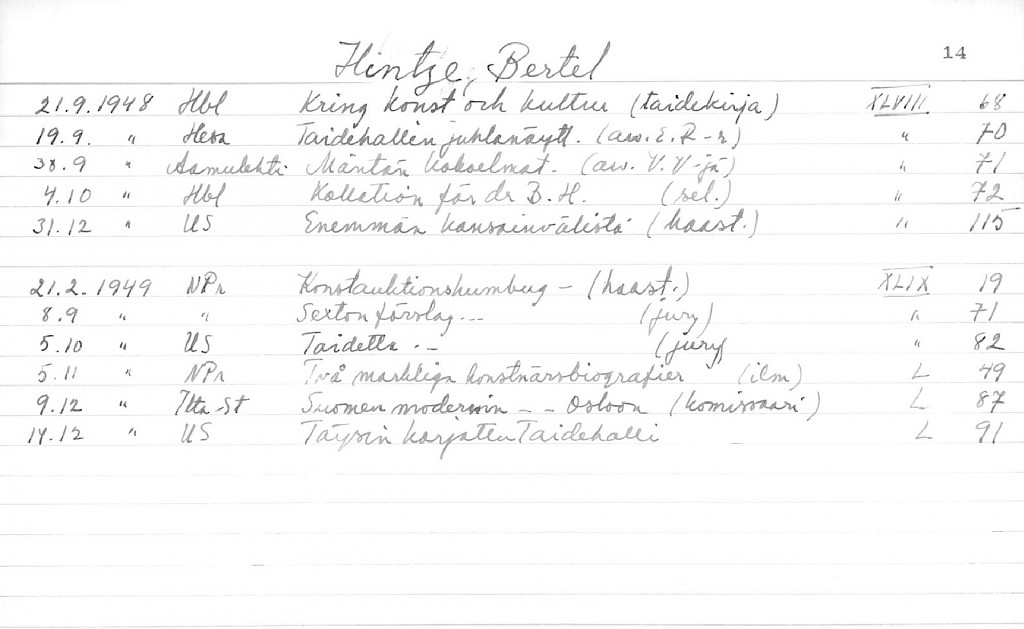 14
Hintze, Bertel
21.9.1948 Hbl Kring konst och kultur (taidekirja) XLVIII 68
19.9. " Hesa Taidehallin juhlanäytt. (arv. E. R-r) " 70
" Aamulehti Mäntän kokoelmat. (arv. V. V-jä) " 71
4.10 " Hbl Kollation för dr B. H. (sel.) " 72
31.12 " US Enemmän kansainvälistä (haast.) " 115
21.2.1949 NPr Konstauktionshumbug - (haast.) XLIX 19
8.9 " " Sexton förslag... (jury) " 71
5.10 " US Taidetta -- (jury) " 82
5.11 " NPr Två märkliga konstnärsbiografier (ilm) L 49
9.12 " Ilta-St Suomen modernin -- Osloon (komissaari) L 87
14.12 " US Täysin korjattu Taidehalli L 91